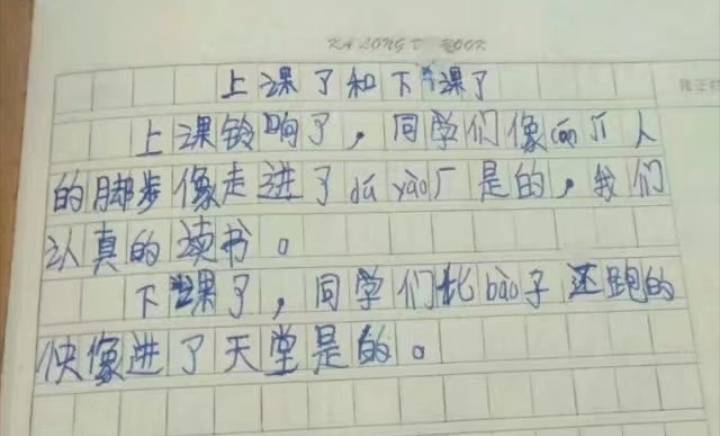 KALONG BOOK
上课了和下课了
上课铃响了，同学们像cán疾人
的脚步像走进了dú yào厂是的，我们
认真的读书。
下课了，同学们比bào子还跑的
快像进了天堂是的。